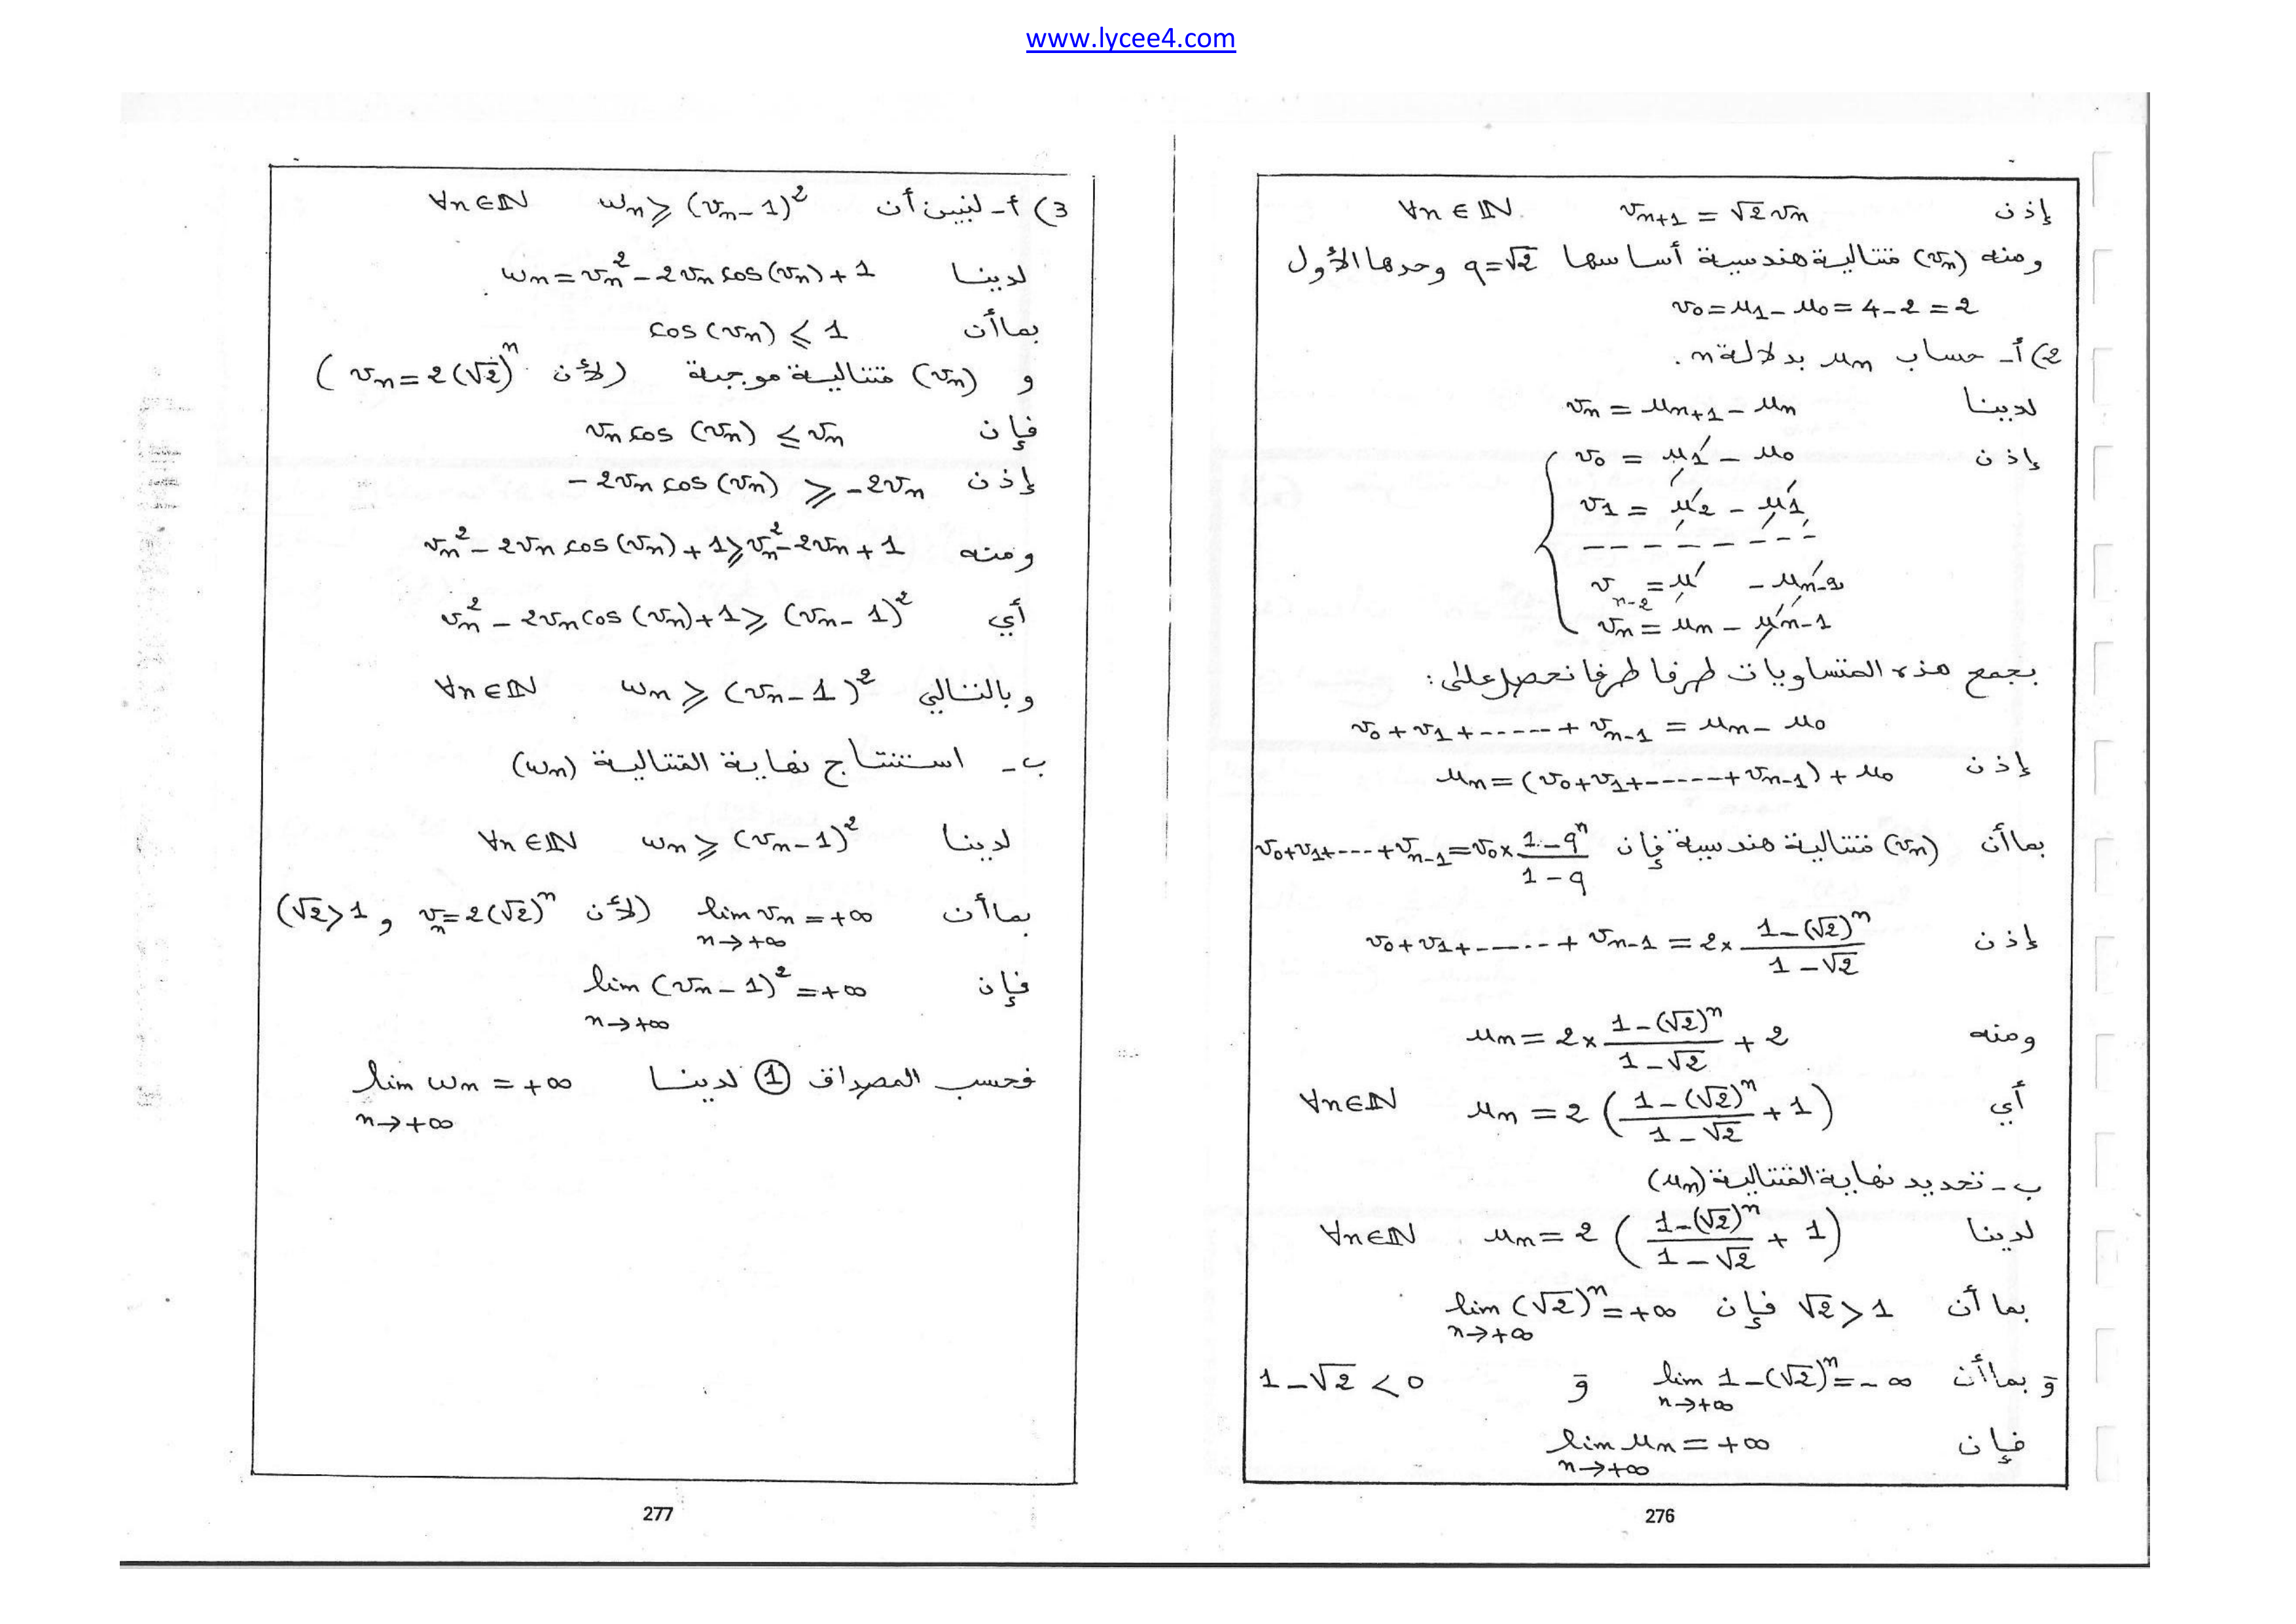 www.lycee4.com
إذن v_{n+1} = √2 v_n ∀n ∈ ℕ
ومنه (v_n) متتالية هندسية أساسها q=√2 وحدها الأول
v_0 = u_1 - u_0 = 4 - 2 = 2
2) أ- حساب u_n بدلالة n.
لدينا v_n = u_{n+1} - u_n
إذن v_0 = u_1 - u_0
v_1 = u_2 - u_1
- - - - - - - - -
v_{n-2} = u - u_{n-2}
v_n = u_n - u_{n-1}
بجمع هذه المتساويات طرفا طرفا نحصل على:
v_0 + v_1 + ------ + v_{n-1} = u_n - u_0
إذن u_n = (v_0 + v_1 + ------ + v_{n-1}) + u_0
بما أن (v_n) متتالية هندسية فإن v_0 + v_1 + ---- + v_{n-1} = v_0 × (1 - q^n)/(1 - q)
إذن v_0 + v_1 + ------ + v_{n-1} = 2 × (1 - (√2)^n)/(1 - √2)
ومنه u_n = 2 × (1 - (√2)^n)/(1 - √2) + 2
أي u_n = 2 ( (1 - (√2)^n)/(1 - √2) + 1 ) ∀n ∈ ℕ
ب- تحديد نهاية المتتالية (u_n)
لدينا u_n = 2 ( (1 - (√2)^n)/(1 - √2) + 1 ) ∀n ∈ ℕ
بما أن √2 > 1 فإن lim_{n→+∞} (√2)^n = +∞
و بما أن lim_{n→+∞} 1 - (√2)^n = -∞ و 1 - √2 < 0
فإن lim_{n→+∞} u_n = +∞
276
3) أ- لنبين أن w_n ⩾ (v_n - 1)^2 ∀n ∈ ℕ
لدينا w_n = v_n^2 - 2v_n cos(v_n) + 1
بما أن cos(v_n) ⩽ 1
و (v_n) متتالية موجبة (لأن v_n = 2(√2)^n)
فإن v_n cos(v_n) ⩽ v_n
إذن -2v_n cos(v_n) ⩾ -2v_n
ومنه v_n^2 - 2v_n cos(v_n) + 1 ⩾ v_n^2 - 2v_n + 1
أي v_n^2 - 2v_n cos(v_n) + 1 ⩾ (v_n - 1)^2
وبالتالي w_n ⩾ (v_n - 1)^2 ∀n ∈ ℕ
ب- استنتاج نهاية المتتالية (w_n)
لدينا w_n ⩾ (v_n - 1)^2 ∀n ∈ ℕ
بما أن lim_{n→+∞} v_n = +∞ (لأن v_n = 2(√2)^n و √2 > 1)
فإن lim_{n→+∞} (v_n - 1)^2 = +∞
فحسب المصداق ① لدينا lim_{n→+∞} w_n = +∞
277